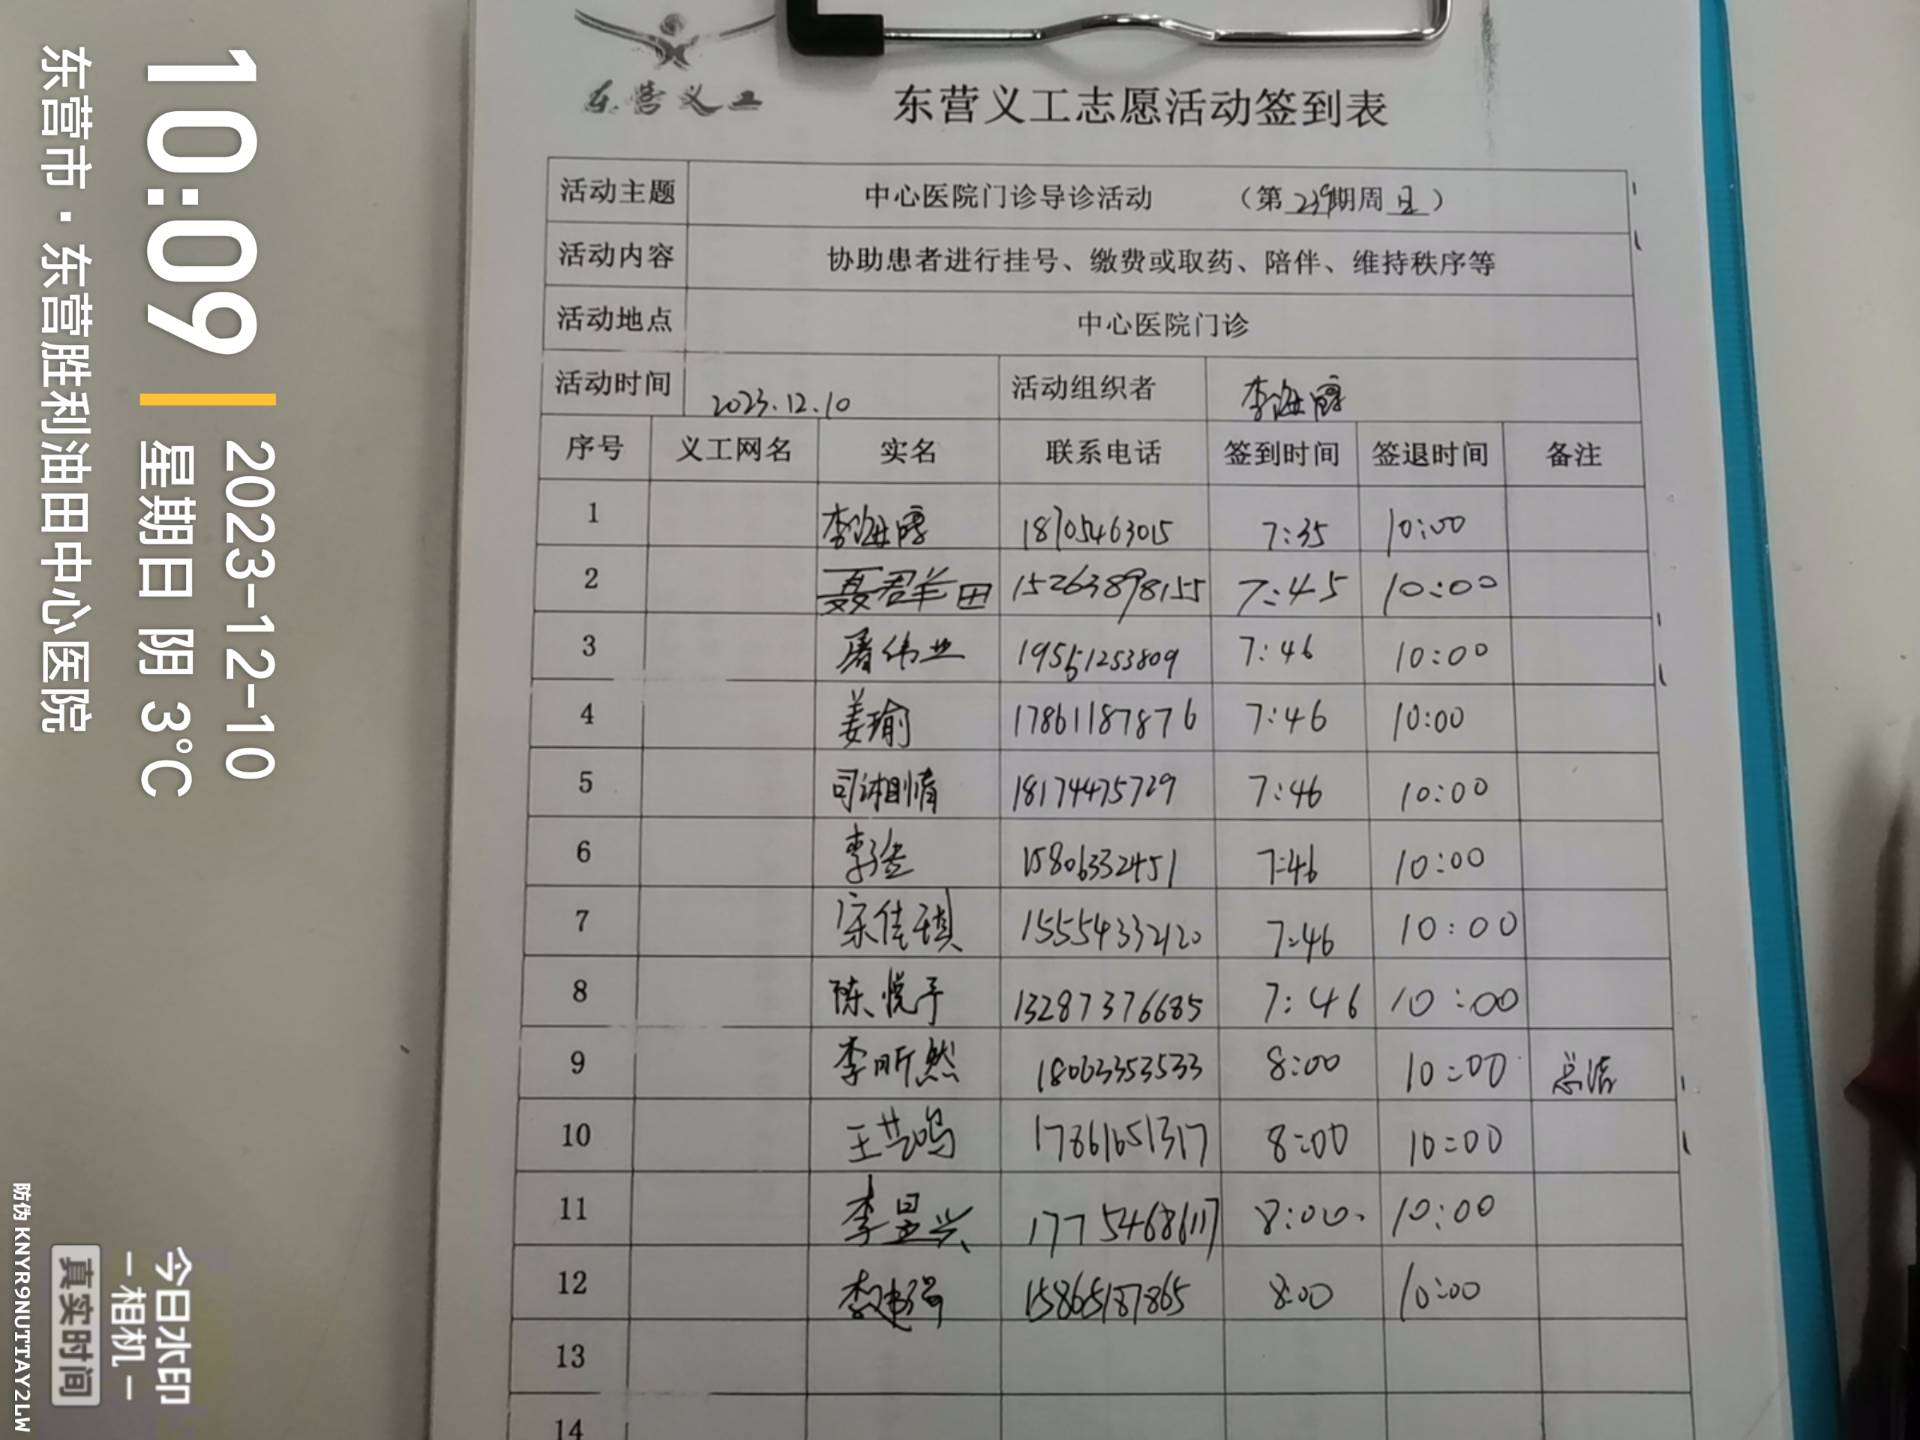 东营义工
东营义工志愿活动签到表
活动主题 中心医院门诊导诊活动 (第239期周日)
活动内容 协助患者进行挂号、缴费或取药、陪伴、维持秩序等
活动地点 中心医院门诊
活动时间 2023.12.10 活动组织者 李海
序号 义工网名 实名 联系电话 签到时间 签退时间 备注
1 李海 18705463015 7:35 10:00
2 聂君羊田 15263898155 7:45 10:00
3 屠伟业 19561253809 7:46 10:00
4 姜瑜 17861187876 7:46 10:00
5 司湘情 18174475729 7:46 10:00
6 李 15806332451 7:46 10:00
7 宋佳琪 15554332120 7:46 10:00
8 陈悦予 13287376685 7:46 10:00
9 李昕然 18063353533 8:00 10:00 总结
10 王艺鸣 17861651317 8:00 10:00
11 李昱兴 17754686117 8:00 10:00
12 李 15865187865 8:00 10:00
13
14
10:09
2023-12-10
星期日 阴 3℃
东营市·东营胜利油田中心医院
今日水印
相机
真实时间
防伪 KNYR9NUTTAY2LW